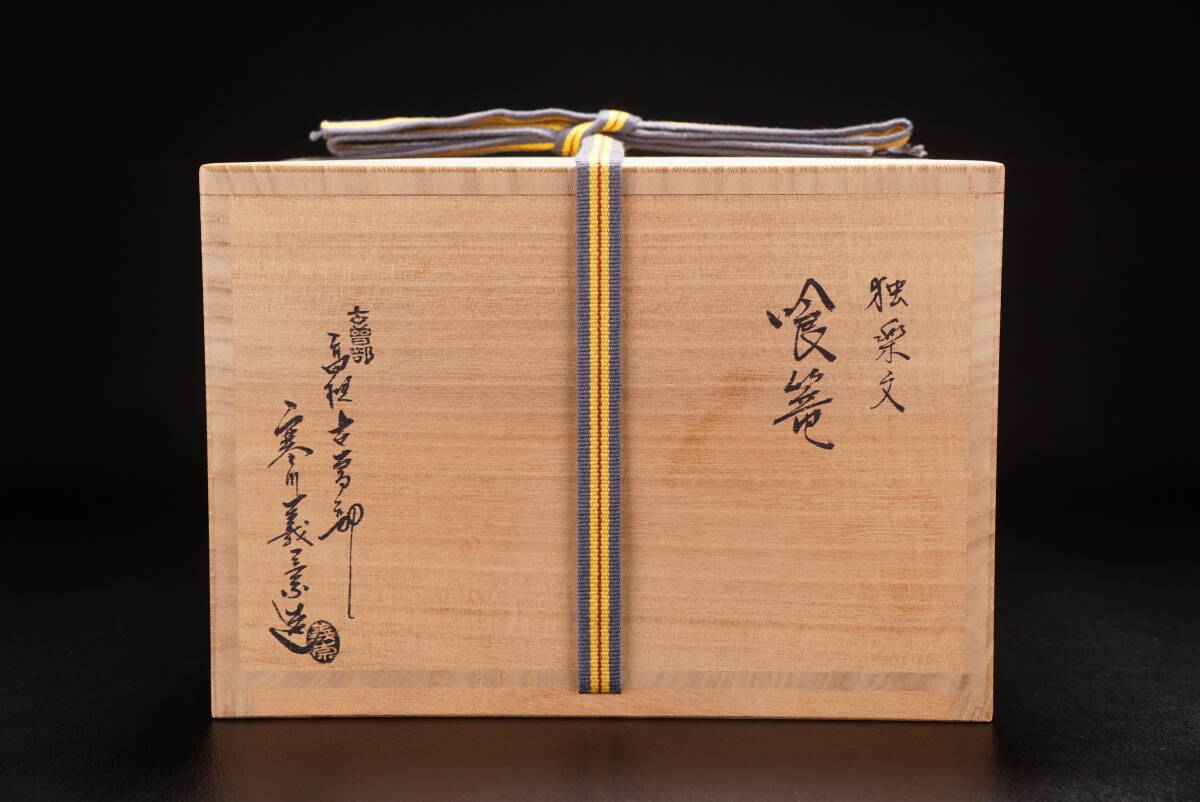 独楽文
喰篭
古曽部
高槻 古曽部
寒川義崇造
義崇